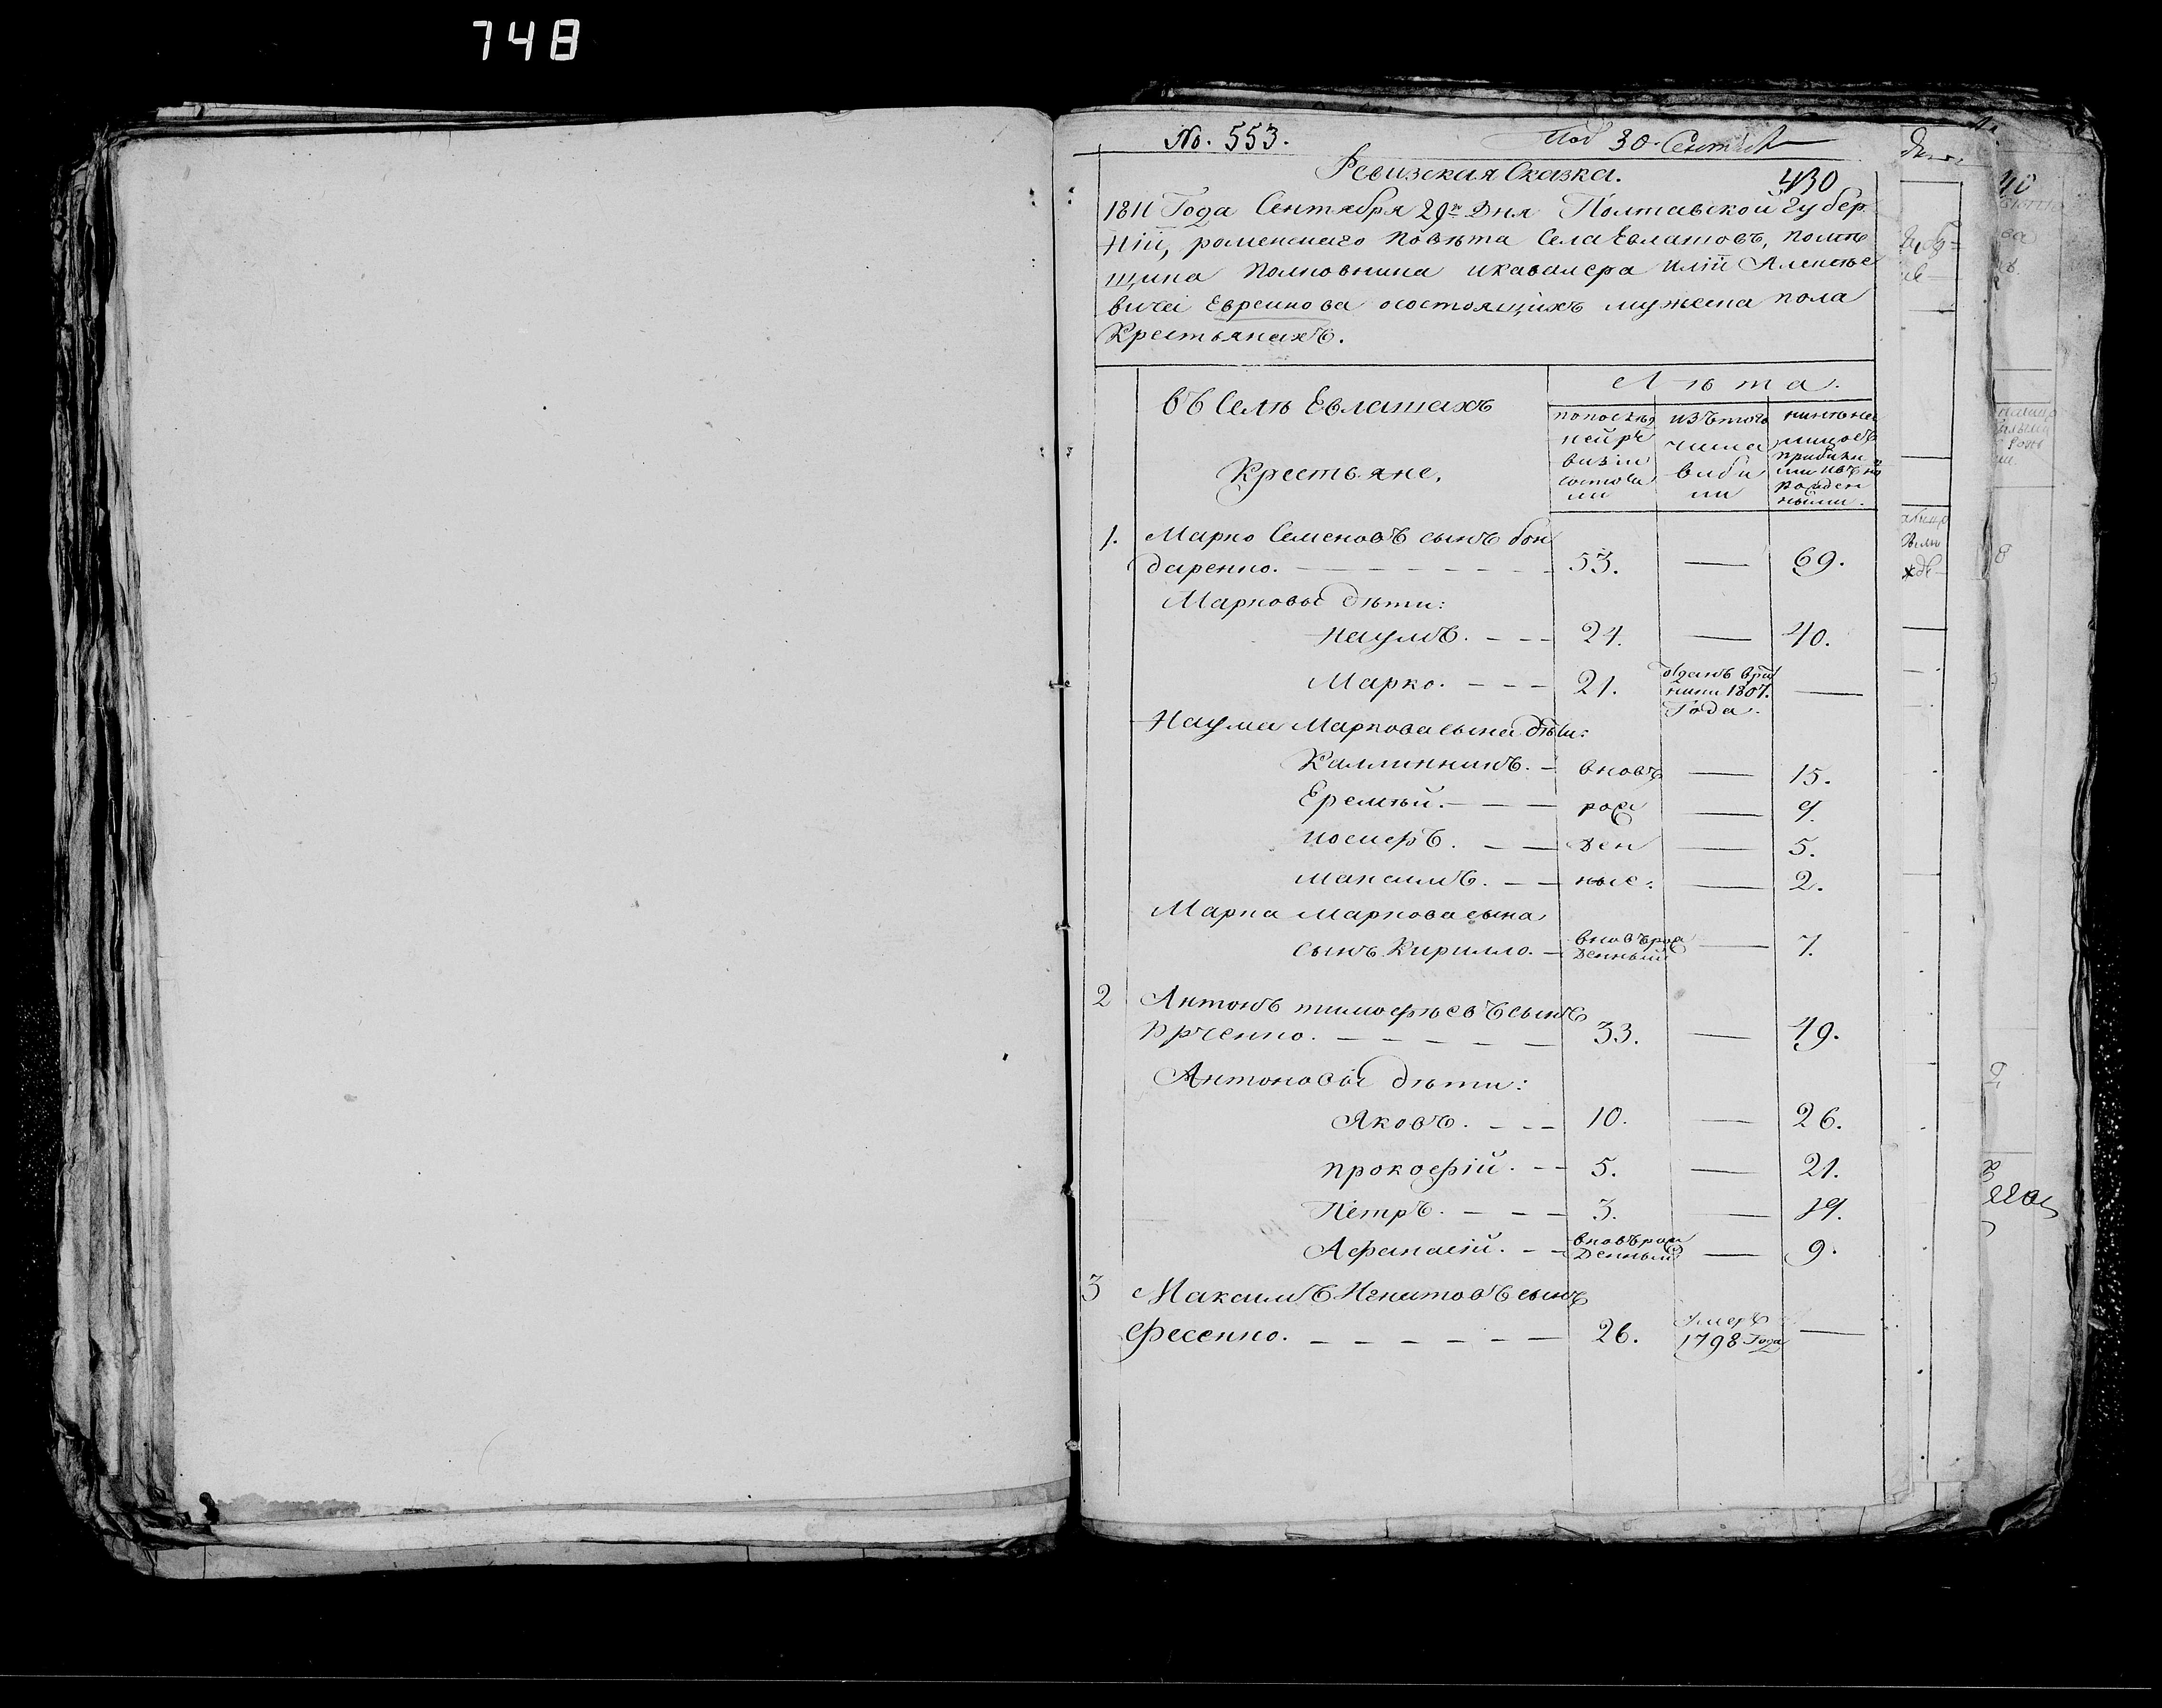 748
No. 553.
Под 30. Сентяб
Ревизская Сказка.
430
1811 Года Сентября 29го Дня Полтавской Губер
ніи, роменского повѣта Села Евлашовъ, помѣ
щика полковника икавалера Иліи Алексѣе
вича Евреинова осостоящихъ мужеска пола
Крестьянахъ.
въ Селѣ Евлашахъ
Крестьяне.
Лѣта.
попослѣд
ней ре
визіи
состоя
ли
изътого
числа
выбы
ли
нынѣ на
лицо съ
прибылы
ми ивъно
рожден
ными.
1. Марко Семеновъ сынъ бон
даренко. 53. — 69.
Марковы дѣти:
Наумъ. 24. — 40.
Марко. 21. отданъ врек
рути 1807. —
Года.
Наума Маркова сына дѣти:
Каллинникъ. вновъ — 15.
Еремѣй. рож — 9.
Иосифъ. ден — 5.
Максимъ. ные: — 2.
Марка Маркова сына
сынъ Кирилло. вновърож
денный — 7.
2 Антонъ тимофѣевъ сынъ
Юрченко. 33. — 49.
Антоновы дѣти:
Яковъ. 10. — 26.
Прокофій. 5. — 21.
Петръ. 3. — 19.
Афанасій. вновърож
денный — 9.
3 Максимъ Игнатовъ сынъ
Фесенко. 26. Умеръ
1798 Года —